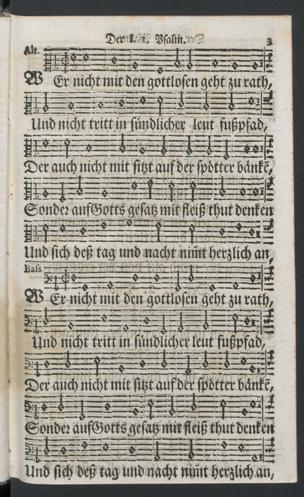 Der I. Psalm. 3
Alt.
WEr nicht mit den gottlosen geht zu rath,
Und nicht tritt in sündlicher leut fußpfad,
Der auch nicht mit sitzt auf der spötter bänkē,
Sonder auf Gotts gesatz mit fleiß thut denken
Und sich deß tag und nacht nim̄t herzlich an,
Bass
WEr nicht mit den gottlosen geht zu rath,
Und nicht tritt in sündlicher leut fußpfad,
Der auch nicht mit sitzt auf der spötter bänkē,
Sonder auf Gotts gesatz mit fleiß thut denken
Und sich deß tag und nacht nim̄t herzlich an,